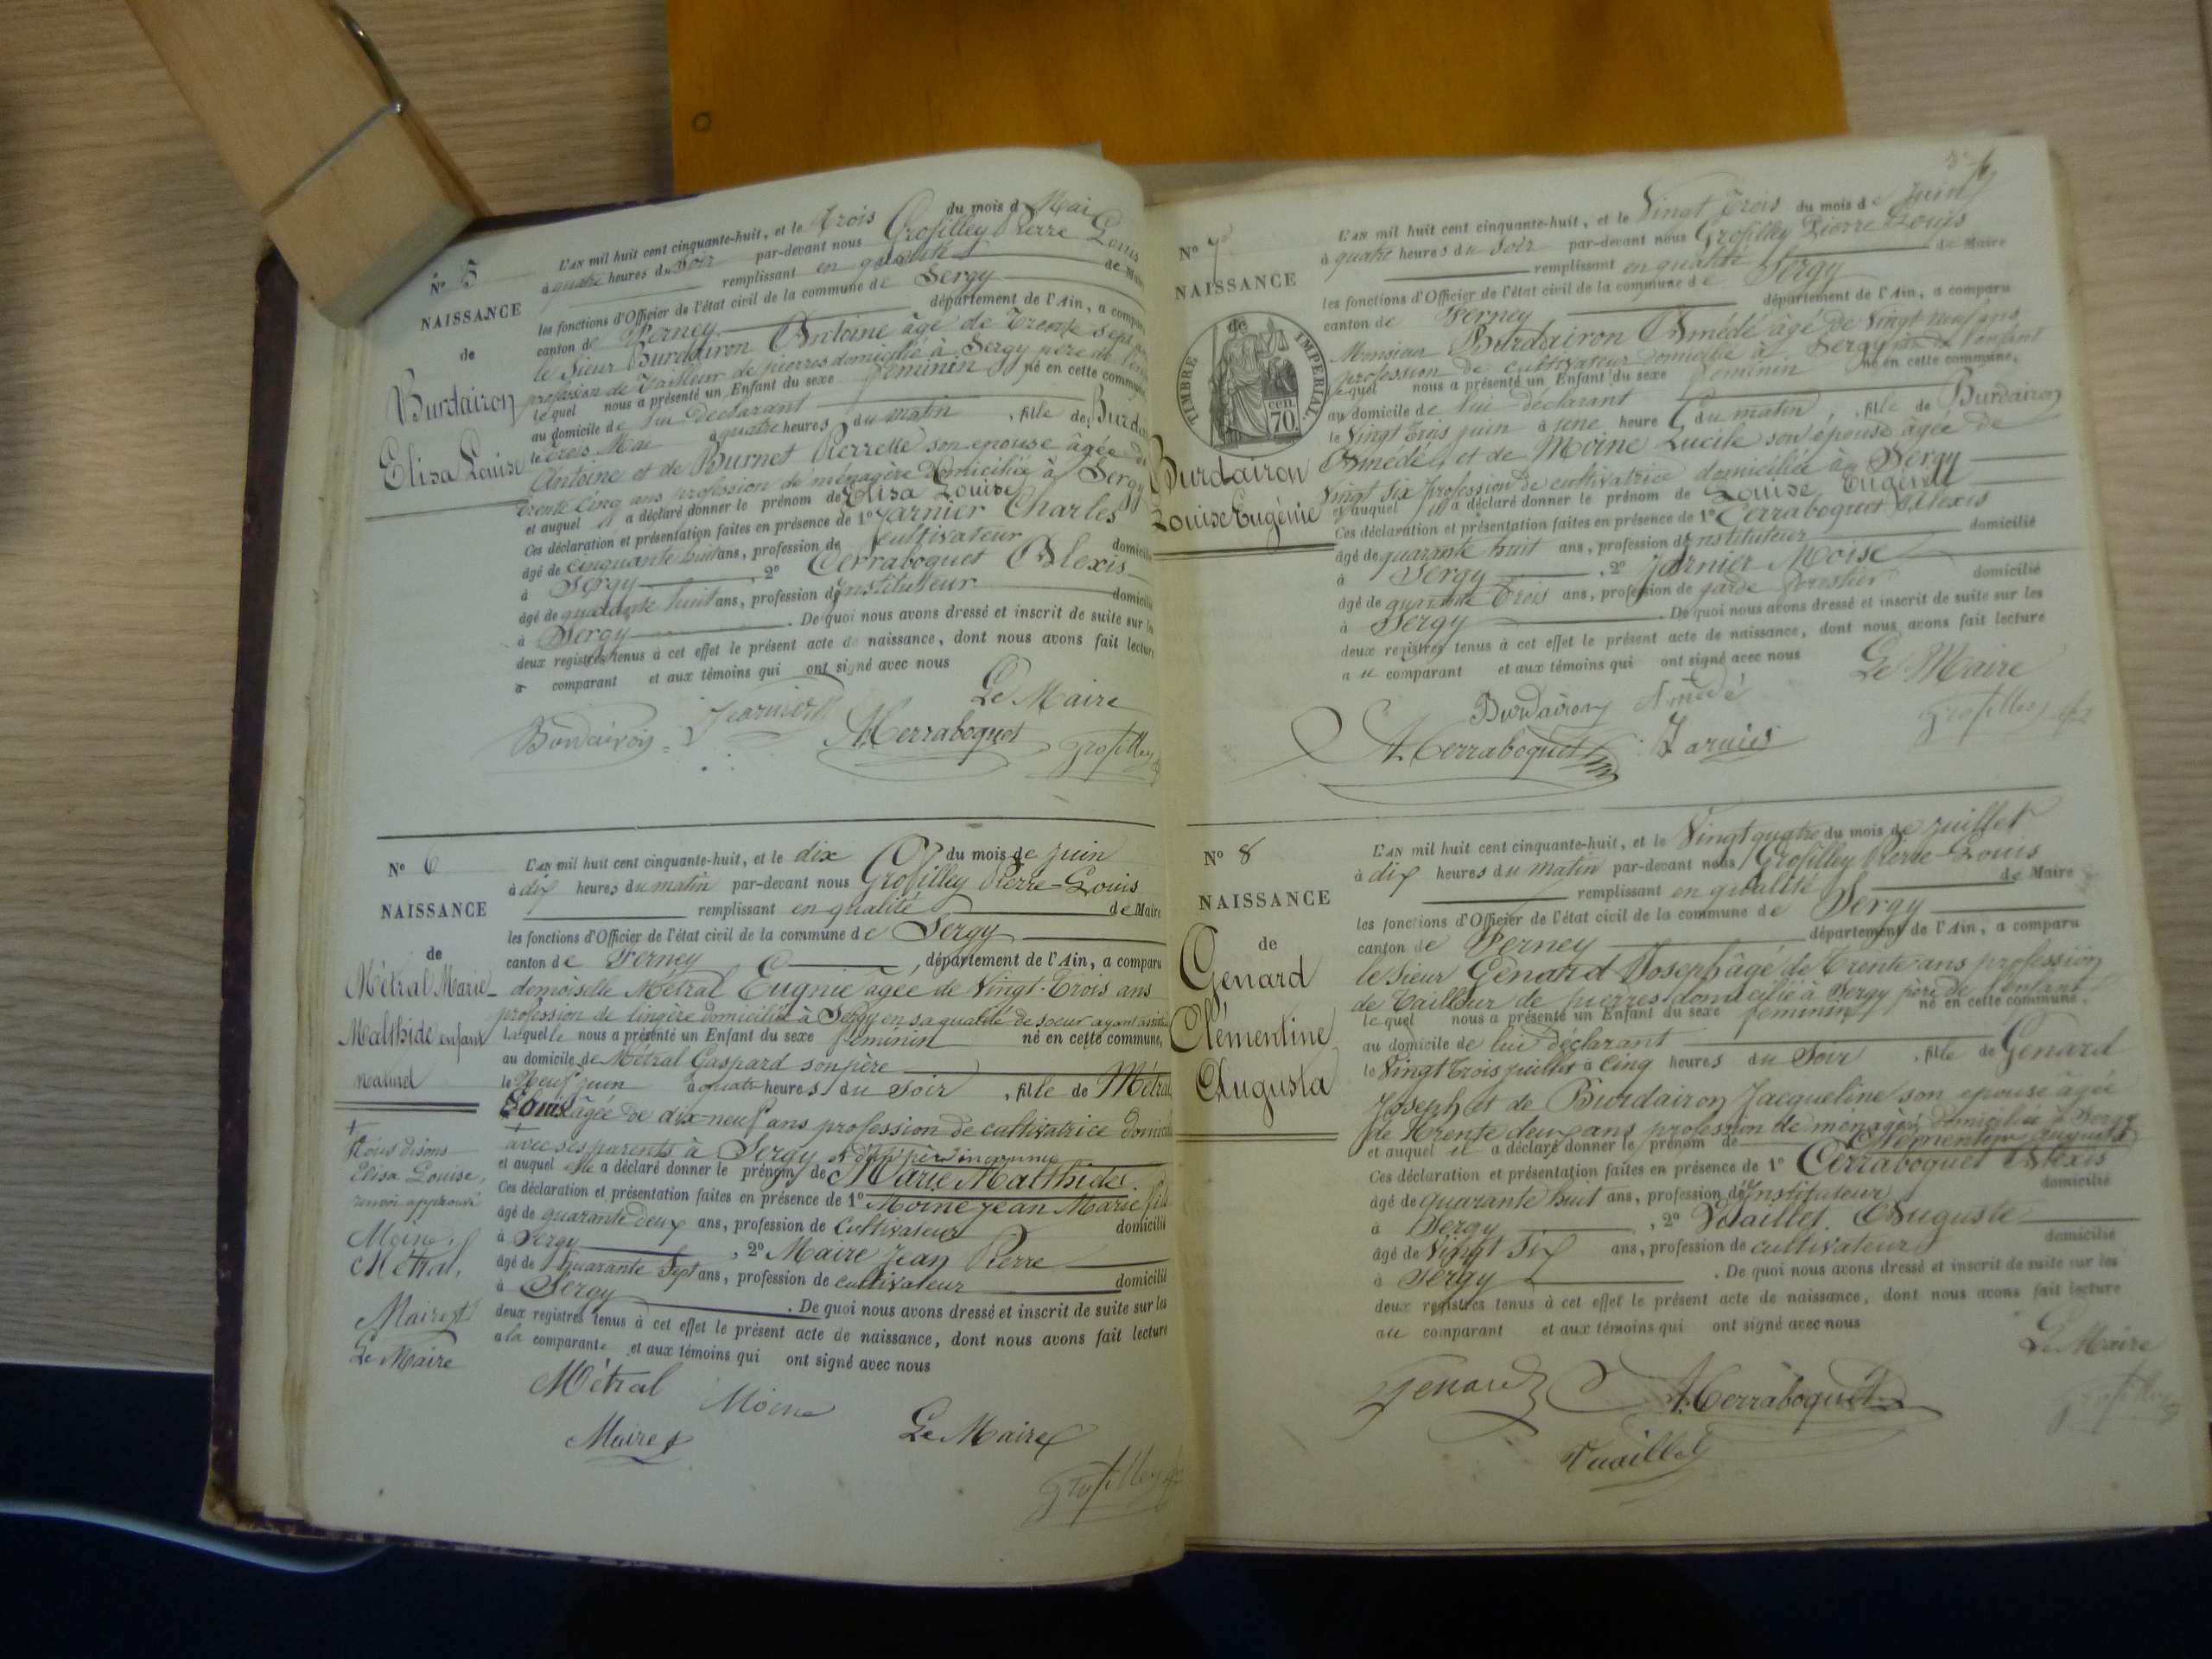 N° 5
NAISSANCE
de
Burdairon
Elisa Louise
L'AN mil huit cent cinquante-huit, et le trois du mois d Mai
à quatre heures du Soir par-devant nous Grosfilley Pierre Louis
remplissant en qualité de Maire
les fonctions d'Officier de l'état civil de la commune de Sergy
canton de Ferney département de l'Ain, a comparu
le Sieur Burdairon Antoine âgé de Trente Sept ans
profession de Tailleur de pierres domicilié à Sergy père de l'enfant
lequel nous a présenté un Enfant du sexe féminin né en cette commune,
au domicile de lui déclarant
le trois Mai à quatre heures du matin, fille de Burdairon
Antoine et de Burnet Pierrette son épouse âgée de
trente Cinq ans profession de ménagère domiciliée à Sergy
et auquel il a déclaré donner le prénom de Elisa Louise
Ces déclaration et présentation faites en présence de 1° Jarnier Charles
âgé de Cinquante huit ans, profession de Cultivateur domicilié
à Sergy, 2° Cerraboquet Alexis
âgé de quarante huit ans, profession d'Instituteur domicilié
à Sergy. De quoi nous avons dressé et inscrit de suite sur les
deux registres tenus à cet effet le présent acte de naissance, dont nous avons fait lecture
a comparant et aux témoins qui ont signé avec nous
Le Maire
Burdairon Jarnier A. Cerraboquet Grosfilley
N° 6
NAISSANCE
de
Métral Marie
Malthide enfant
naturel
L'AN mil huit cent cinquante-huit, et le dix du mois de juin
à dix heures du matin par-devant nous Grosfilley Pierre-Louis
remplissant en qualité de Maire
les fonctions d'Officier de l'état civil de la commune de Sergy
canton de Ferney, département de l'Ain, a comparu
demoiselle Métral Eugnie âgée de Vingt-Trois ans
profession de lingère domiciliée à Sergy en sa qualité de soeur ayant assisté
Laquelle nous a présenté un Enfant du sexe féminin né en cette commune,
au domicile de Métral Gaspard son père
le Neuf juin à quatre heures du Soir, fille de Métral
Louise âgée de dix-neuf ans profession de cultivatrice domiciliée
avec ses parents à Sergy et d'un père inconnu
et auquel elle a déclaré donner le prénom de Marie Malthide.
Ces déclaration et présentation faites en présence de 1° Moine Jean Marie fils
âgé de quarante deux ans, profession de Cultivateur domicilié
à Sergy, 2° Maire Jean Pierre
âgé de Quarante Sept ans, profession de cultivateur domicilié
à Sergy. De quoi nous avons dressé et inscrit de suite sur les
deux registres tenus à cet effet le présent acte de naissance, dont nous avons fait lecture
a la comparante et aux témoins qui ont signé avec nous
+
Nous disons
Elisa Louise,
renvoi approuvé
Moine,
Métral,
Maire
Le Maire
Métral Moine
Maire Le Maire
Grosfilley
N° 7
NAISSANCE
de
TIMBRE IMPERIAL.
CEN. 70.
Burdairon
Louise Eugénie
L'AN mil huit cent cinquante-huit, et le Vingt Trois du mois de Juin
à quatre heures du Soir par-devant nous Grosfilley Pierre Louis
remplissant en qualité de Maire
les fonctions d'Officier de l'état civil de la commune de Sergy
canton de Ferney département de l'Ain, a comparu
Monsieur Burdairon Amédé âgé de Vingt neuf ans
profession de cultivateur domicilié à Sergy père de l'enfant
lequel nous a présenté un Enfant du sexe féminin né en cette commune,
au domicile de lui déclarant
le Vingt Trois juin à une heure du matin, fille de Burdairon
Amédé, et de Moine Lucile son épouse âgée de
Vingt Six profession de cultivatrice domiciliée à Sergy
et auquel il a déclaré donner le prénom de Louise Eugénie
Ces déclaration et présentation faites en présence de 1° Cerraboquet Alexis
âgé de quarante huit ans, profession d'Instituteur domicilié
à Sergy, 2° Jarnier Moïse
âgé de quarante Trois ans, profession de garde forestier domicilié
à Sergy. De quoi nous avons dressé et inscrit de suite sur les
deux registres tenus à cet effet le présent acte de naissance, dont nous avons fait lecture
au comparant et aux témoins qui ont signé avec nous
Le Maire
Burdairon Amédé
Grosfilley
A. Cerraboquet Jarnier
N° 8
NAISSANCE
de
Genard
Clémentine
Augusta
L'AN mil huit cent cinquante-huit, et le Vingt quatre du mois de juillet
à dix heures du matin par-devant nous Grosfilley Pierre-Louis
remplissant en qualité de Maire
les fonctions d'Officier de l'état civil de la commune de Sergy
canton de Ferney département de l'Ain, a comparu
le Sieur Genard Joseph âgé de Trente ans profession
de Tailleur de pierres domicilié à Sergy père de l'enfant
lequel nous a présenté un Enfant du sexe féminin né en cette commune,
au domicile de lui déclarant
le Vingt Trois juillet à Cinq heures du Soir, fille de Genard
Joseph et de Burdairon Jacqueline son épouse âgée
de Trente deux ans profession de ménagère domiciliée à Sergy
et auquel il a déclaré donner le prénom de Clémentine Augusta
Ces déclaration et présentation faites en présence de 1° Cerraboquet Alexis
âgé de quarante huit ans, profession d'Instituteur domicilié
à Sergy, 2° Vuaillet Auguste
âgé de Vingt Six ans, profession de cultivateur domicilié
à Sergy. De quoi nous avons dressé et inscrit de suite sur les
deux registres tenus à cet effet le présent acte de naissance, dont nous avons fait lecture
au comparant et aux témoins qui ont signé avec nous
Le Maire
Genard A. Cerraboquet Grosfilley
Vuaillet